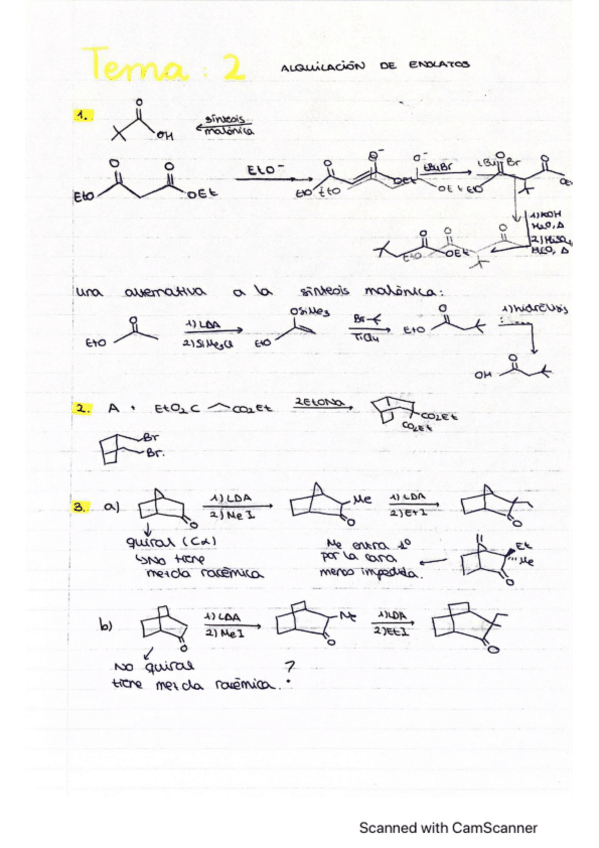 Tema: 2 ALQUILACIÓN DE ENOLATOS
1.
O
OH
síntesis
malónica
O O
EtO OEt
EtO⁻
O O⁻ O⁻
EtO EtO OEt OEt
tBuBr
tBu Br
O O
EtO
1) KOH
H2O, Δ
H2O, Δ
O O O
EtO OEt
una alternativa a la síntesis malónica:
O
EtO
1) LDA
2) SiMe3Cl
OSiMe3
EtO
Br
TiCl4
O
EtO
1) hidrólisis
O
OH
2. A + EtO2C CO2Et 2EtONa
CO2Et
CO2Et
Br
Br.
3. a)
O
1) LDA
2) MeI
Me
O
1) LDA
2) EtI
O
quiral (Cα)
↳ No tiene
mezcla racémica
Me entra 1º
por la cara
menos impedida.
Et
Me
O
b)
O
1) LDA
2) MeI
Me
O
1) LDA
2) EtI
O
No quiral
tiene mezcla racémica. ?
Scanned with CamScanner